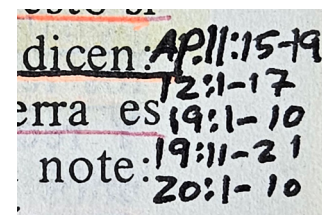 dicen: AP.11:15-19
12:1-17
erra es 19:1-10
note: 19:11-21
20:1-10